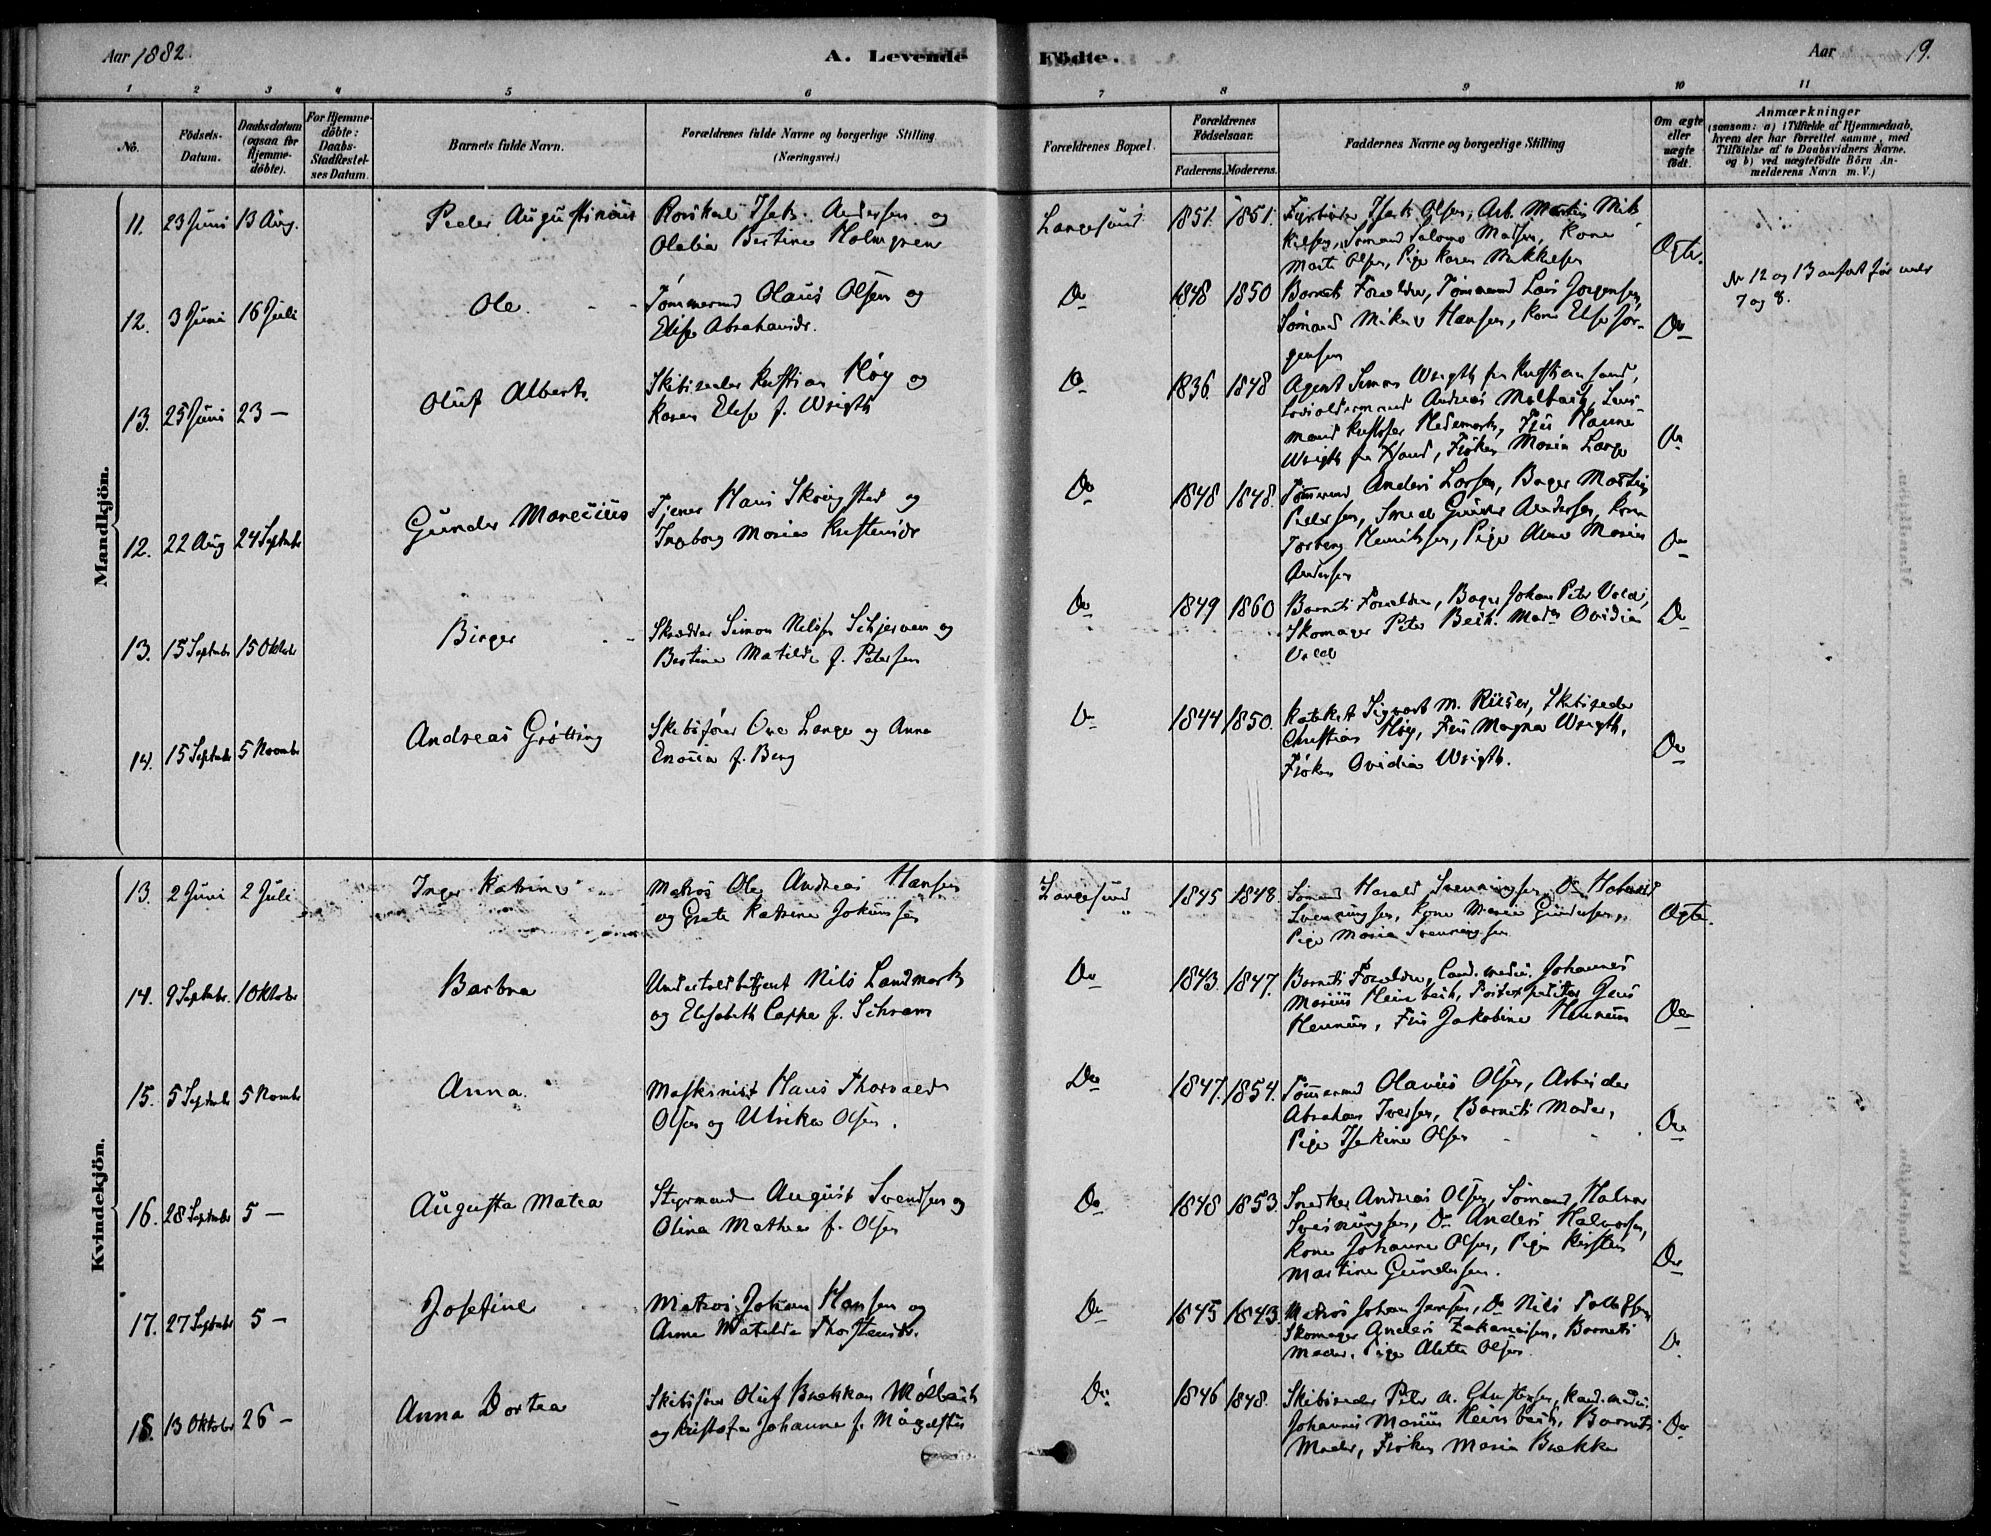 Aar 1882.
A. Levende
Födte.
Aar
19.
1 2 3 4 5 6 7 8 9 10 11
No.
Födsels-Datum.
Daabsdatum (ogsaa for Hjemmedöbte).
For Hjemmedöbte: Daabs-Stadfæstelses Datum.
Barnets fulde Navn.
Forældrenes fulde Navne og borgerlige Stilling
(Næringsvei.)
Forældrenes Bopæl.
Forældrenes Födselsaar.
Faderens. Moderens.
Faddernes Navne og borgerlige Stilling
Om ægte eller uægte födt.
Anmærkninger
(saasom: a) i Tilfælde af Hjemmedaab,
hvem der har forrettet samme, med
Tilföielse af to Daabsvidners Navne,
og b) ved uægtefödte Börn An-
melderens Navn m. V.)
Mandkjön.
11. 23 Juni 13 Aug. Peder Augustinius
Isak Andersen og
Bertine Holmgren
Langesund 1851. 1851.
Isak Olsen, Arb. Martin Mik-
kelsen, Sømand Salomo Madsen, Kone
Marte Olsen, Pige Karen Mikkelsen
Ægte.
12. 3 Juni 16 Juli Ole
Tømmermd Olaus Olsen og
Elise Abrahamsdr.
Do 1848 1850
Barnets Forældre, Tømmermd Lars Jørgensen,
Sømand Mikael Hansen, Kone Else Jør-
gensen
Do
Nr 12 og 13 anført før under
7 og 8.
13. 25 Juni 23 — Oluf Albert.
Skibsreder Kristian Høy og
Karen Elise f. Wrigth
Do 1836 1848
Agent Simon Wrigth fra Kristiansand,
Lodsoldermand Andreas Molbach, Lens-
mand Kristofer Hedemark, Fru Hanne
Wrigth fra Xsand, Frøken Maria Lange
Do
12. 22 Aug 24 Septembr Gunder Marecius
Tjener Hans Skringstad og
Ingborg Maria Kristensdr
Do 1848 1848.
Tømmermd Anders Larsen, Bager Martin
Pedersen, Smed Gunder Andersen, Kone
Torberg Henriksen, Pige Anne Maria
Andersen
Do
13. 15 Septembr 15 Oktobr Birger
Skrædder Simon Nilsen Schjerven og
Bertine Matilde f. Petersen
Do 1849 1860
Barnets Forældre, Bager Johan Peter Vold,
Skomager Peter Bech. Madm Ovidia
Vold
Do
14. 15 Septembr 5 Novembr Andreas Grötting
Skibsfører Ove Lange og Anna
Enosia f. Berg
Do 1844 1850.
Kateket Sigvart M. Riiser, Skibsreder
Christian Høy, Fru Magna Wrigth,
Frøken Ovidia Wrigth.
Do
Kvindekjön.
13. 2 Juni 2 Juli Inger Katrine
Matros Ole Andreas Hansen
og Grete Katrine Jokumsen
Langesund 1845 1848.
Sømand Harald Svenningsen, Do
Svenningsen, Kone Maria Gundersen,
Pige Maria Svenningsen
Ægte.
14. 9 Septembr. 1 Oktobr Barbra
Undertoldbetjent Nils Landmark
og Elisabeth Cappe f. Schram
Do 1843. 1847.
Barnets Forældre, Cand. medic. Johannes
Marius Heimbeck, Postexpeditør Jens
Henum, Fru Jakobine Henum
Do
15. 5 Septembr 5 Novembr Anna.
Maskinist Hans Thorvald
Olsen og Ulrika Olsen.
Do 1847. 1854.
Tømmermd Olavus Olsen, Arbeider
Abraham Iversen, Barnets Moder,
Pige Isekine Olsen
Do
16. 28 Septembr 5 — Augusta Matea
Styrmand August Svendsen og
Olina Mathea f. Olsen
Do 1848 1853.
Snedker Andreas Olsen, Sømand Halvor
Sveinungsen, Do Anders Halvorsen,
Kone Johanne Olsen, Pige Kirsten
Martine Gundersen.
Do
17. 27 Septembr 5 — Josefine
Matros Johan Hansen og
Anne Matilde Thorstensdr.
Do 1845 1843.
Matros Johan Jensen, Do Nils Tollefsen
Skomager Anders Zakariasen, Barnets
Moder, Pige Alette Olsen
Do
18. 13 Oktobr 26 — Anna Dortea
Skibsfører Oluf Bakkan Mølbach
og Kristofa Johanne f. Magelssen
Do 1846 1848.
Skibsreder Peter A. Christensen, Kand. medic.
Johannes Marius Heimbech, Barnets
Moder, Frøken Maria Bakke
Do